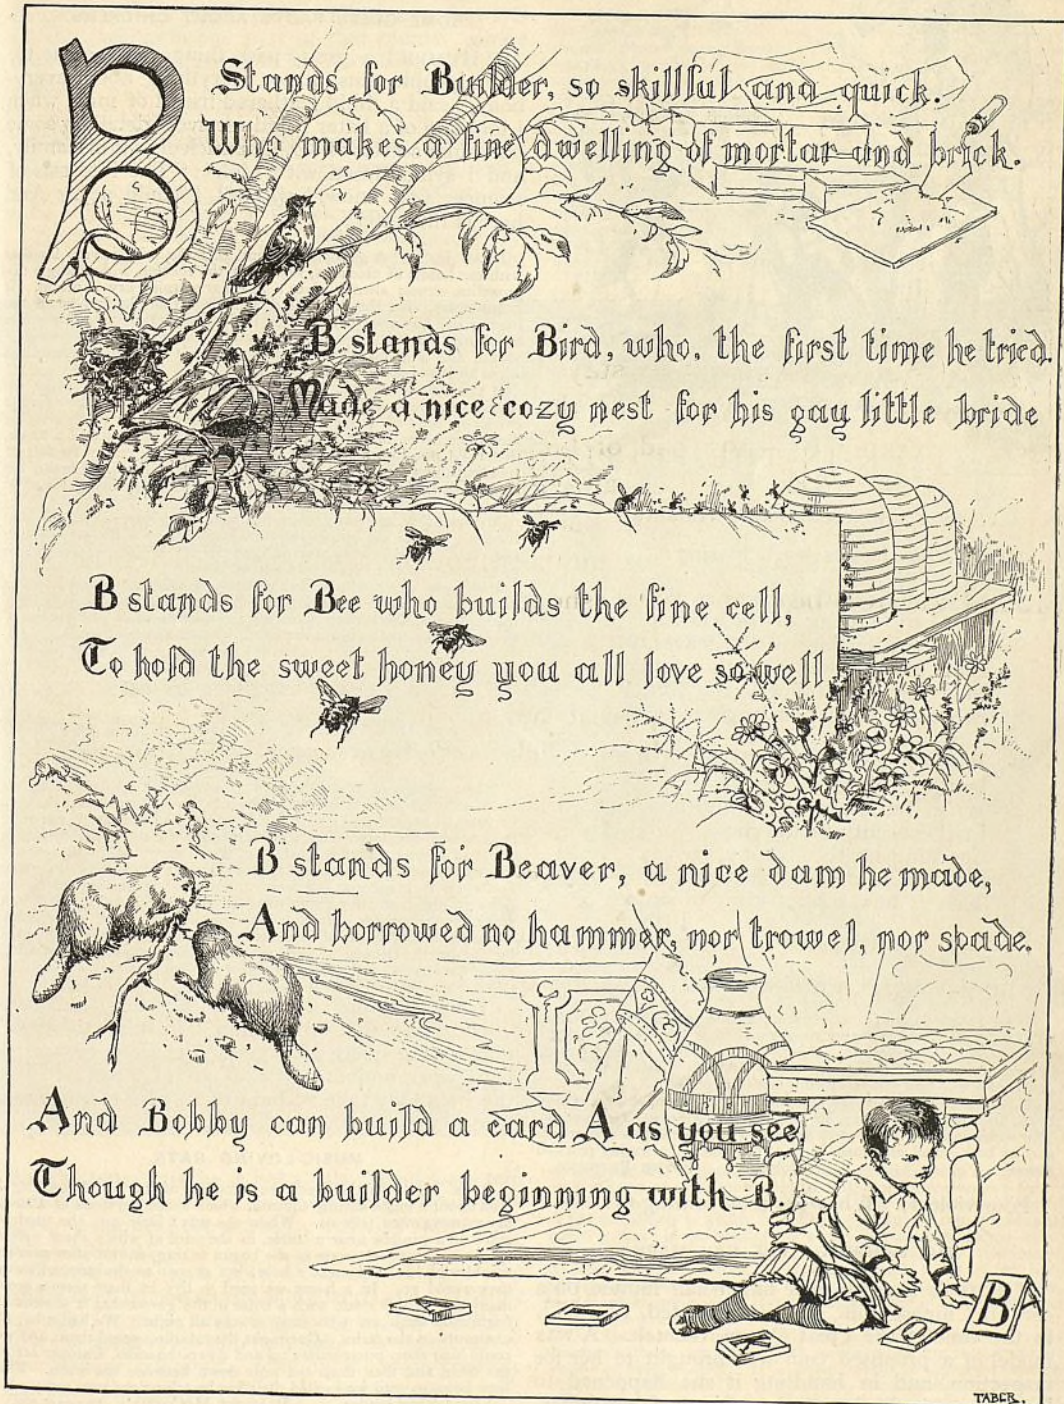 B Stands for Builder, so skillful and quick.
Who makes a fine dwelling of mortar and brick.
B stands for Bird, who, the first time he tried.
Made a nice cozy nest for his gay little bride
B stands for Bee who builds the fine cell,
To hold the sweet honey you all love so well
B stands for Beaver, a nice dam he made,
And borrowed no hammer, nor trowel, nor spade.
And Bobby can build a card A as you see
Though he is a builder beginning with B.
B A
A
K
Q
TABER.